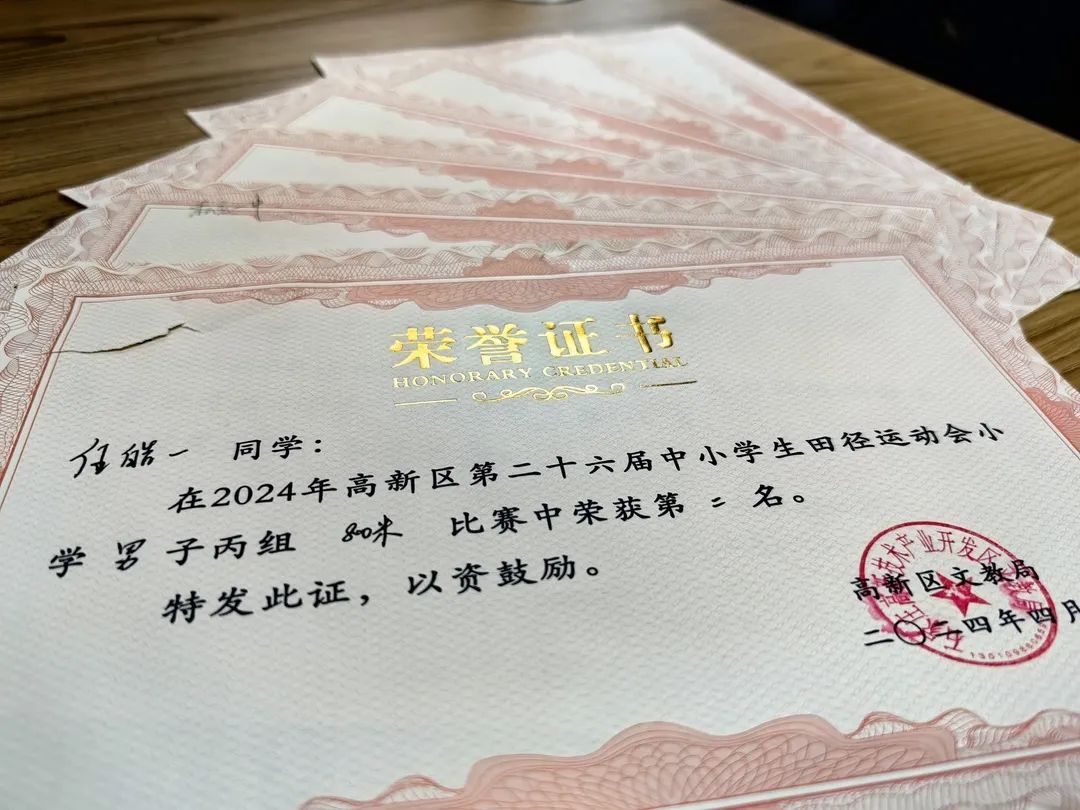 荣誉证书
HONORARY CREDENTIAL
任皓一 同学：
在2024年高新区第二十六届中小学生田径运动会小
学男子丙组 800米 比赛中荣获第二名。
特发此证，以资鼓励。
高新区文教局
二〇二四年四月